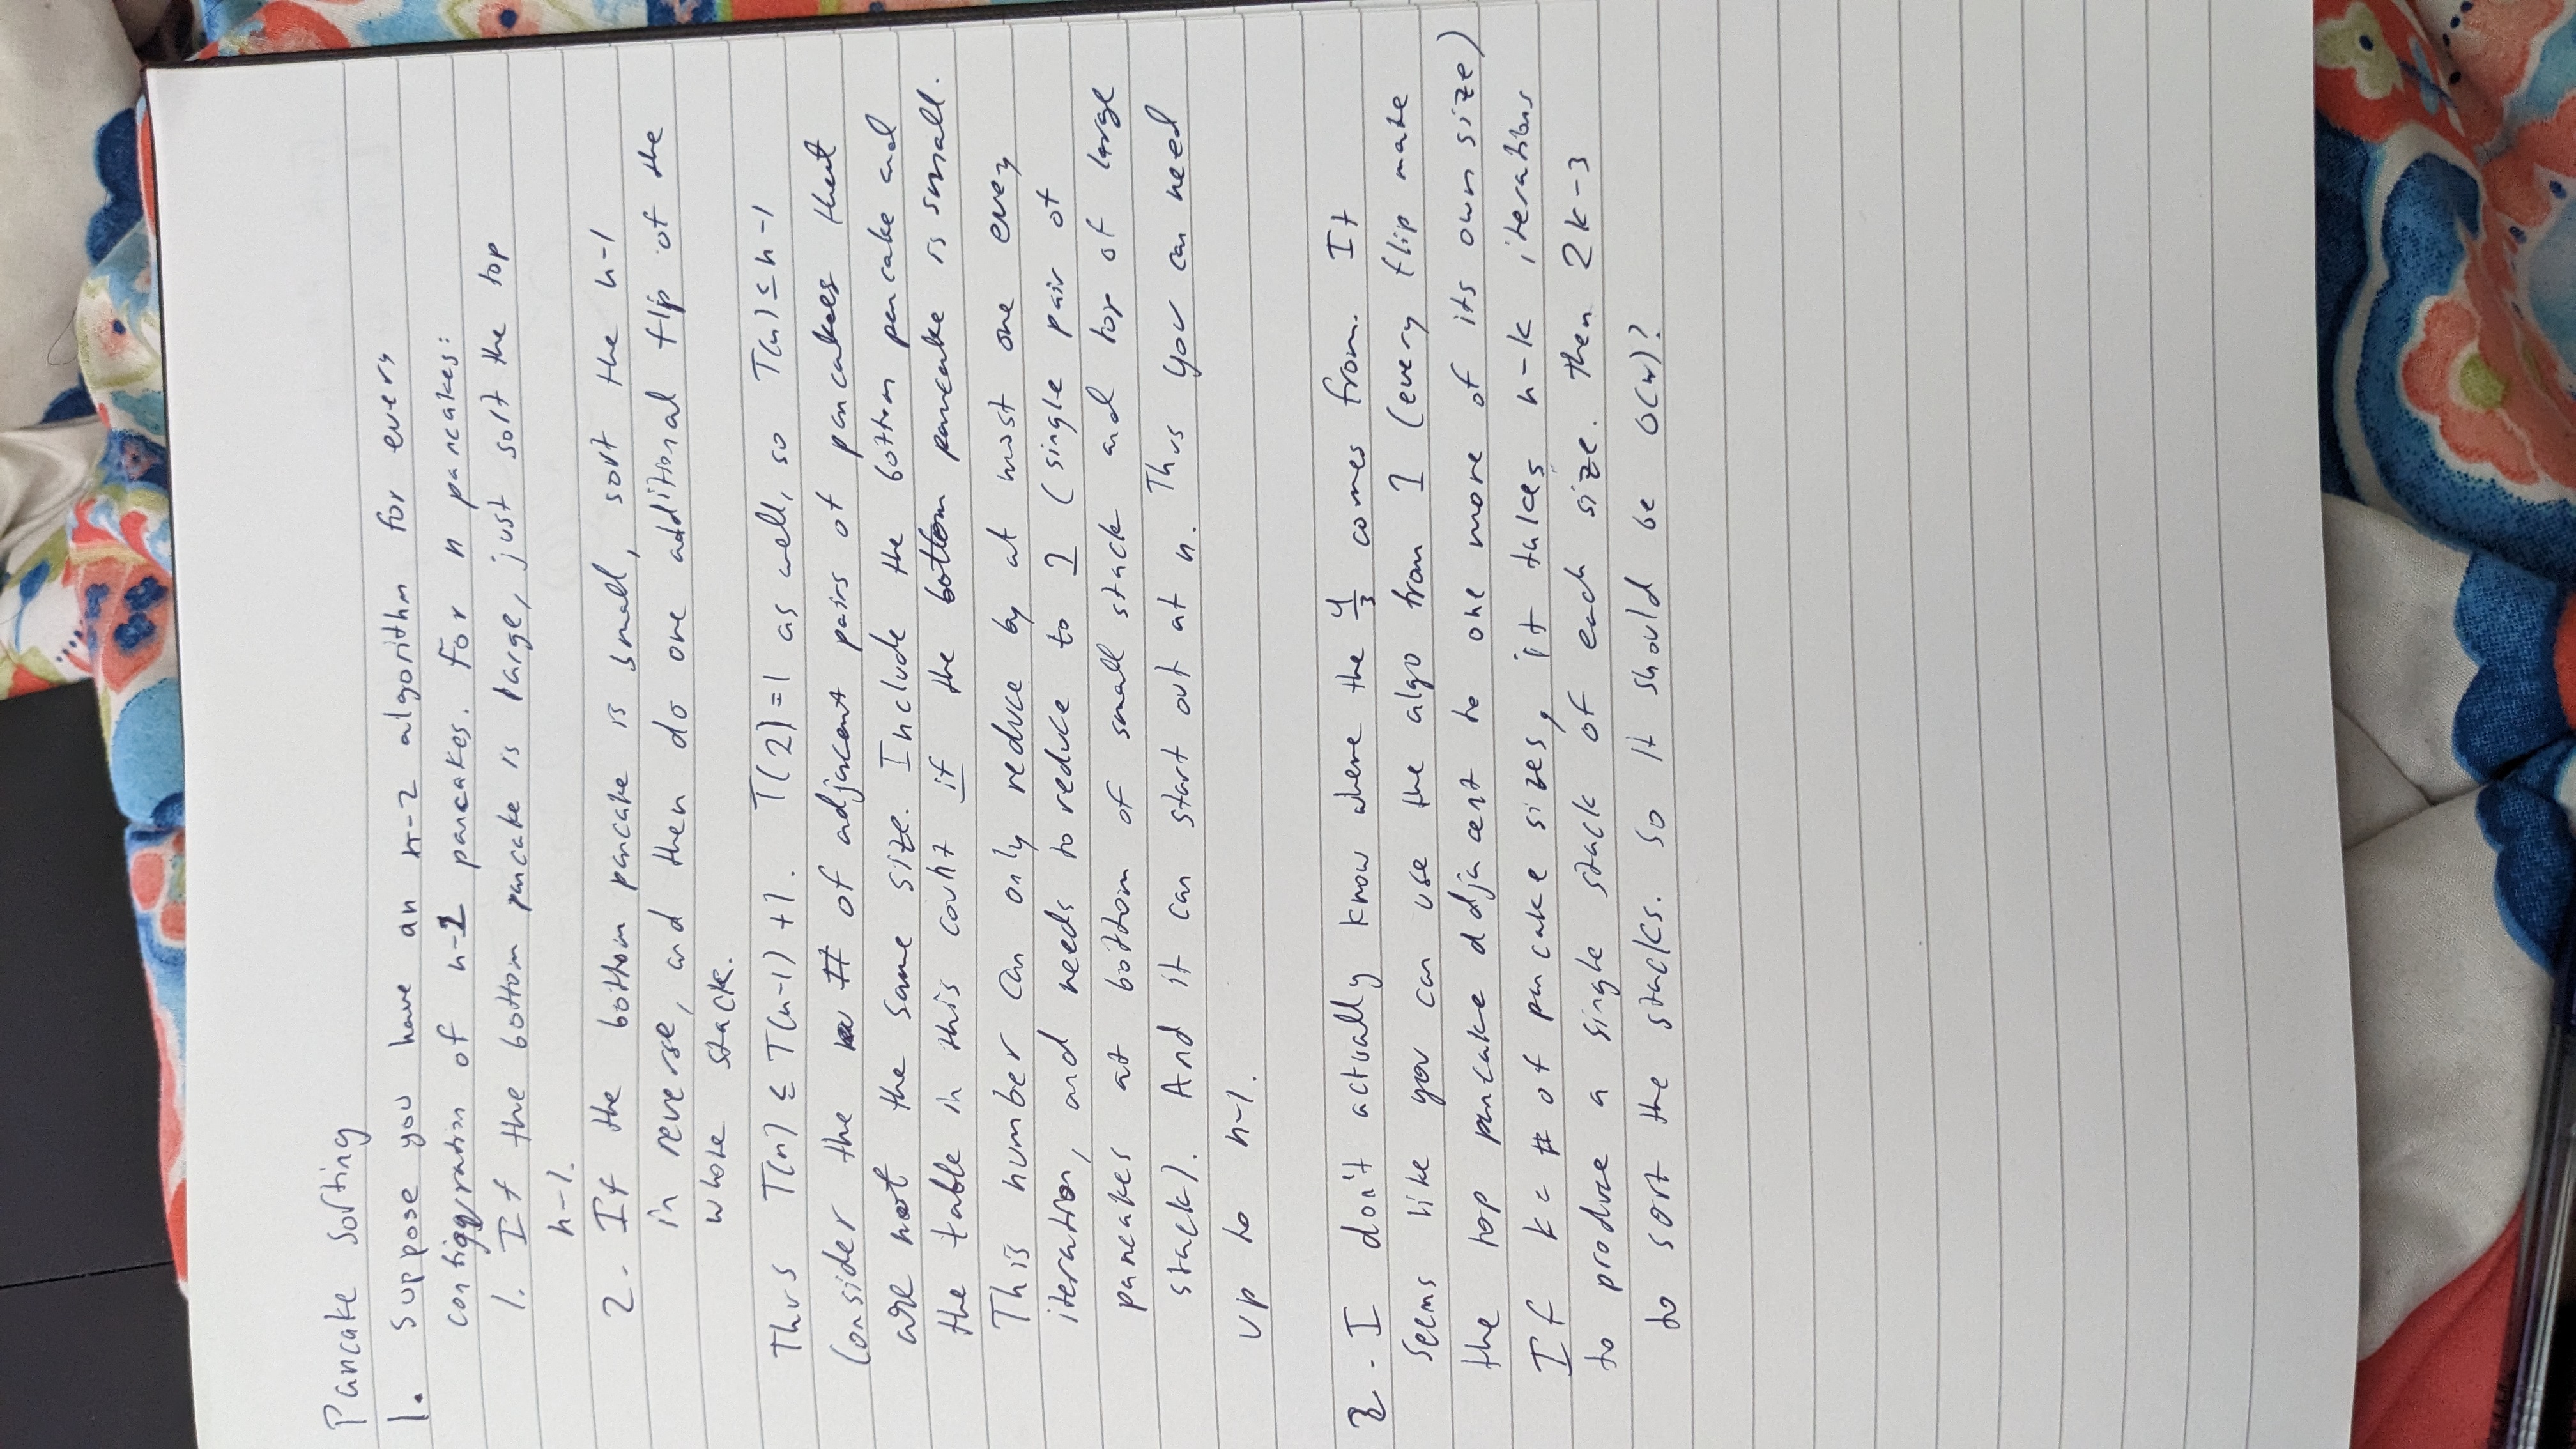 Pancake Sorting
1. Suppose you have an n-2 algorithm for every
configuration of n-1 pancakes. For n pancakes:
1. If the bottom pancake is large, just sort the top
n-1.
2. If the bottom pancake is small, sort the n-1
in reverse, and then do one additional flip of the
whole stack.
Thus T(n) ≤ T(n-1) + 1. T(2) = 1 as well, so T(n) ≤ n-1
Consider the # of adjacent pairs of pancakes that
are not the same size. Include the bottom pancake and
the table in this count if the bottom pancake is small.
This number can only reduce by at most one every
iteration, and needs to reduce to 1 (single pair of
pancakes at bottom of small stack and top of large
stack). And it can start out at n. Thus you can need
up to n-1.
2. I don't actually know where the 4/3 comes from. It
seems like you can use the algo from 1 (every flip make
the top pancake adjacent to one more of its own size)
If k = # of pancake sizes, it takes n-k iterations
to produce a single stack of each size. then 2k-3
to sort the stacks. So it should be O(n)?